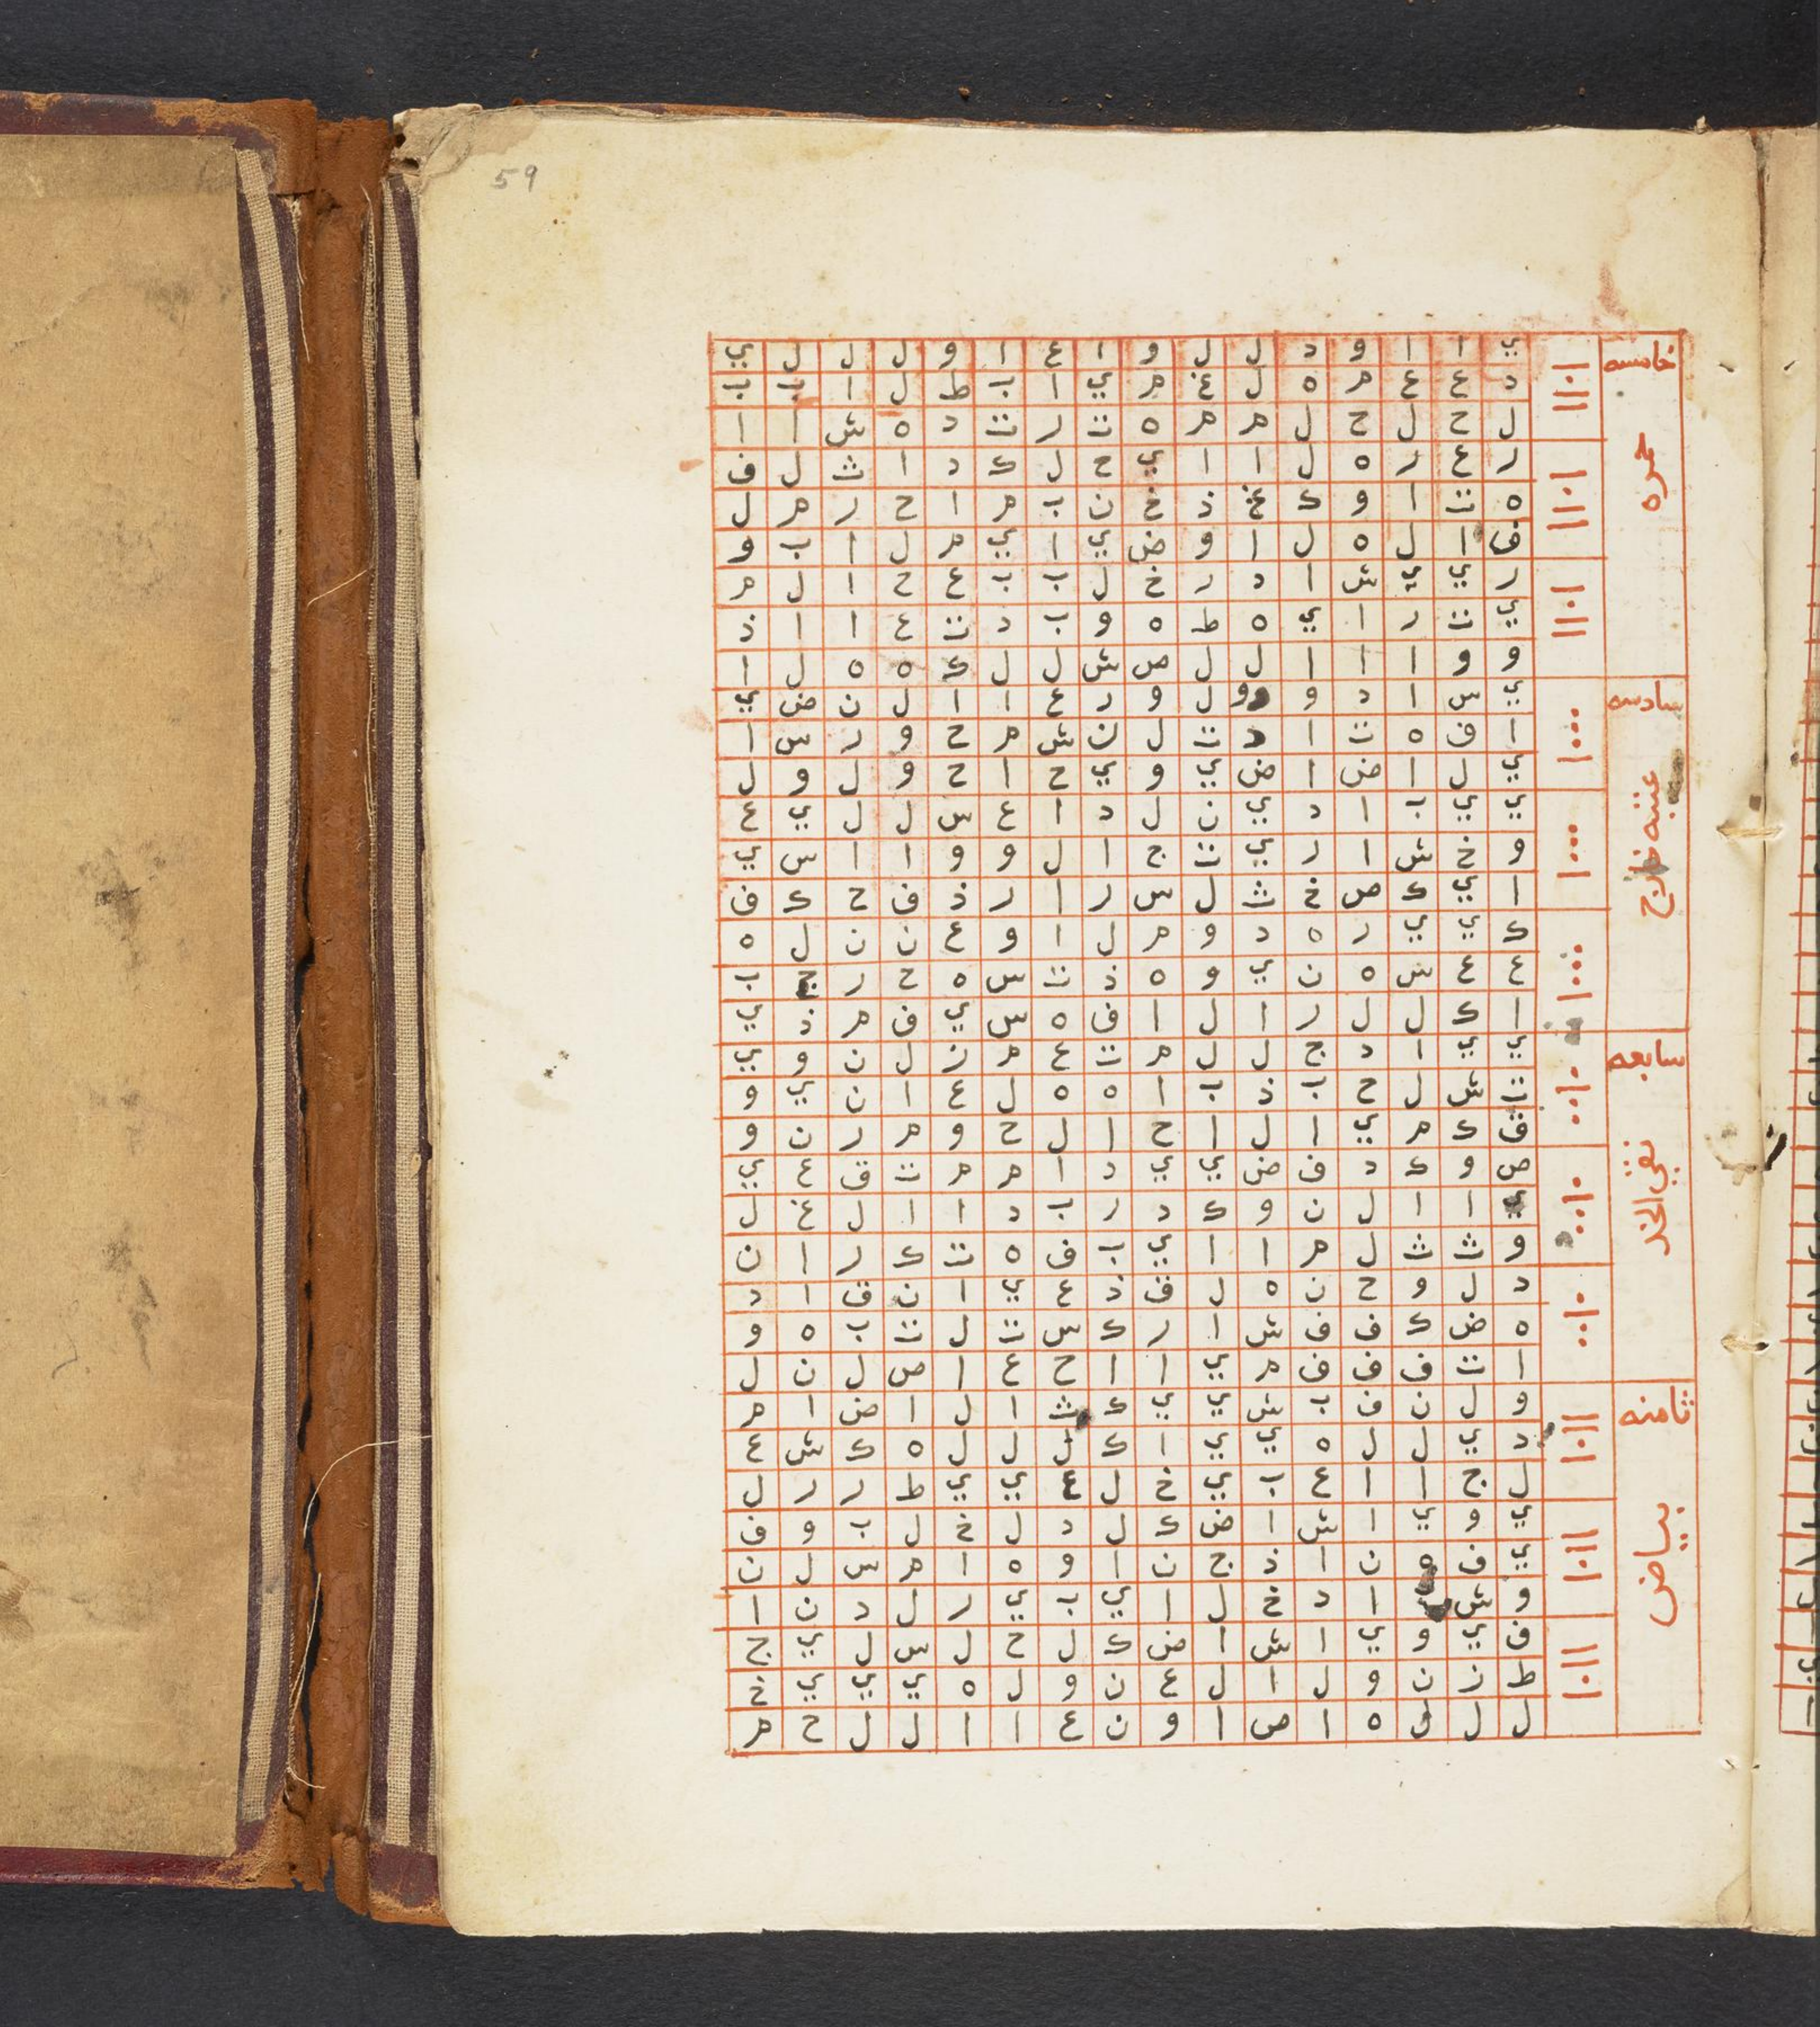 59
خامسه
حمره
ي ا ا و د ل ل و ا ع ا و ل ل ل ي
د ع ع م ه ل غ م ي ا ب ط ل ا ب ب
ل ح ل ح ل م م ه ت ر ت د ه ش ا ا
ر ع ر ه ل ا ا ي ح ل ك د ا ث ل ف
ه ت ا و ك غ ذ خ ن ب م ا ح ر م ل
ف ا ل ه ل ا و ض ي ا ي م ل ا ب و
ر ي ي ش ا د ر خ ل ب ب ع ح ا ل م
ي ت ر ا ي ه ط ه و ب د ت ع ا ا ذ
و و ا ا ا ل ل ص ش ل ل ك ه ه ل ا
سادسه
عتبه خارج
ي س ا د و و ل و ر ع ا ا ل ن ض ي
ا ف ه ت ا د ت ل ن ش م ح و ر س ا
ي ل ا ض ا ض ي و ي ح ا ح و ل و ل
ي ي ب ا د ي ن ل د ا ع س ل ل ي ع
و خ ش ا ر ي ت ج ا ل و و ا ا س ي
ا ي ك ص خ ث ل س ر ا ر ذ ف ح ك ف
ك ي ي ر ه د و م ل ا و ع ن ن ل ه
ع ع س ه ن ي و ه ذ ت س ه ح ر ج ب
ا ك ل ل ر ا ل ا ف ه س ي ف م ذ ي
سابعه
نقي الخد
ي ي ا د ج ل ل م ت ع م ن ل ن و ي
ت ش ل ح ب ذ ب ا ه ه ل ع ا ن ي و
ق ك م ي ا ل ا ح ا ل ح و م ر ن و
ص و ك د ف ض ي ي د ا م م ت ق ع ي
ا ا ل ن و ك د ر ب د ا ا ل غ ل
و ث ث ل م ا ا ي ب ف ه ت ك ر ا ن
د ل و ح ن ه ل ق ذ ع ي ا ن ق ا د
ه ض ك ف ف ش ا ر ك س ت ل ت ب ه و
ا ت ف ف ف م ي ا ا ح ع ا ص ل ن ل
ثامنه
بياض
و ل ن ف ب ش ي ي ك ث ا ل ا ض ا م
د ي ل ل ه ي ي ا ك ل ل ل ه ك ش ع
ل ج ا ا ع ب ي خ ل ع ي ي ط ر ر ل
ي و ي ا ش ا ض ك ل د ل خ ل ب و ف
ي ف ه ن ا ذ ج ن ا و ه ا م س ل ن
و ش ا د خ ل ا ي ب ي ر ل د ن ا
ف ي و ي ا ش ا ض ك ل ح ل س ل ي ج
ط ز ن و ل ا ل ع ن و ل ه ي ي ي خ
ل ل ل ه ا ص ا و ن ع ا ا ل ل ح م